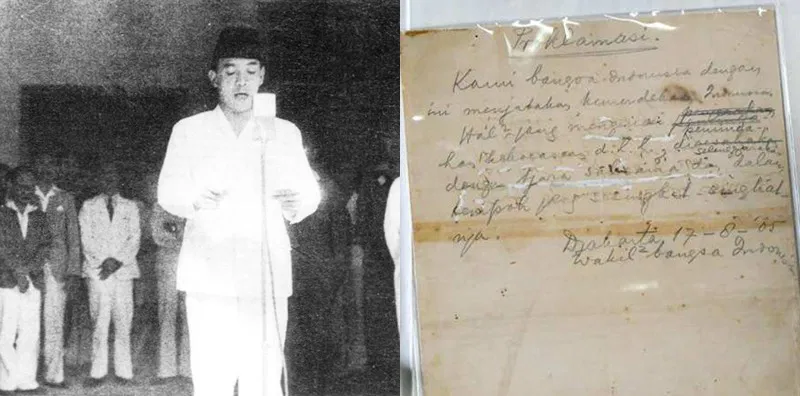 Proklamasi.
Kami bangsa Indonesia dengan
ini menjatakan kemerdekaan Indonesia
Hal² jang mengenai peminda-
han kekoeasaan d.l.l., diselenggarakan
dengan tjara saksama dan dalam
tempoh jang sesingkat-singkat
nja.
Djakarta 17-8-'05
Wakil² bangsa Indonesi